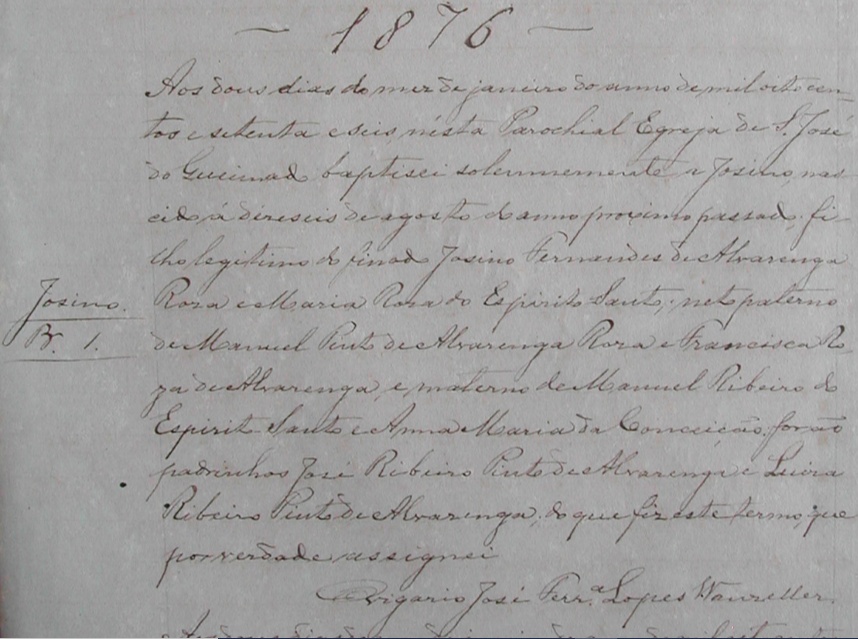 1876
Aos dous dias do mez de janeiro do anno de mil oito cen-
tos e setenta e seis, nésta Parochial Egreja de S. José
do Queimado baptisei solemnemente a Josino, nas-
cido á dezeseis de agosto do anno proximo passado, fi-
lho legitimo do finado Josino Fernandes de Alvarenga
Josino.
Roza e Maria Roza do Espirito Santo; neto paterno
Br. 1.
de Manuel Pinto de Alvarenga Roza e Francisca Ro-
za de Alvarenga, e materno de Manuel Ribeiro do
Espirito Santo e Anna Maria da Conceição: forão
padrinhos José Ribeiro Pinto de Alvarenga e Luiza
Ribeiro Pinto de Alvarenga; do que fiz este termo, que
por verdade assignei
O Vigario José Ferr.ª Lopes